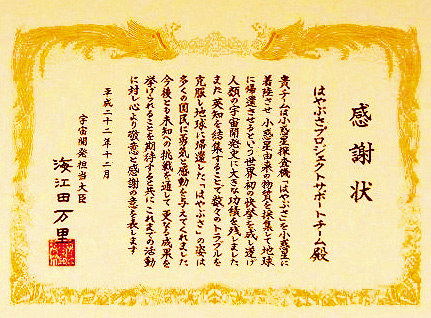 感謝状
はやぶさプロジェクトサポートチーム殿
貴チームは小惑星探査機「はやぶさ」を小惑星に
着陸させ 小惑星由来の物質を採集して地球
に帰還させるという世界初の快挙を成し遂げ
人類の宇宙開発史に大きな功績を残しました
また 英知を結集することで数々のトラブルを
克服し地球に帰還した「はやぶさ」の姿は
多くの国民に勇気と感動を与えてくれました
今後とも未知への挑戦を通して 更なる成果を
挙げられることを期待すると共に これまでの活動
に対し心より敬意と感謝の意を表します
平成二十二年十二月
宇宙開発担当大臣
海江田万里